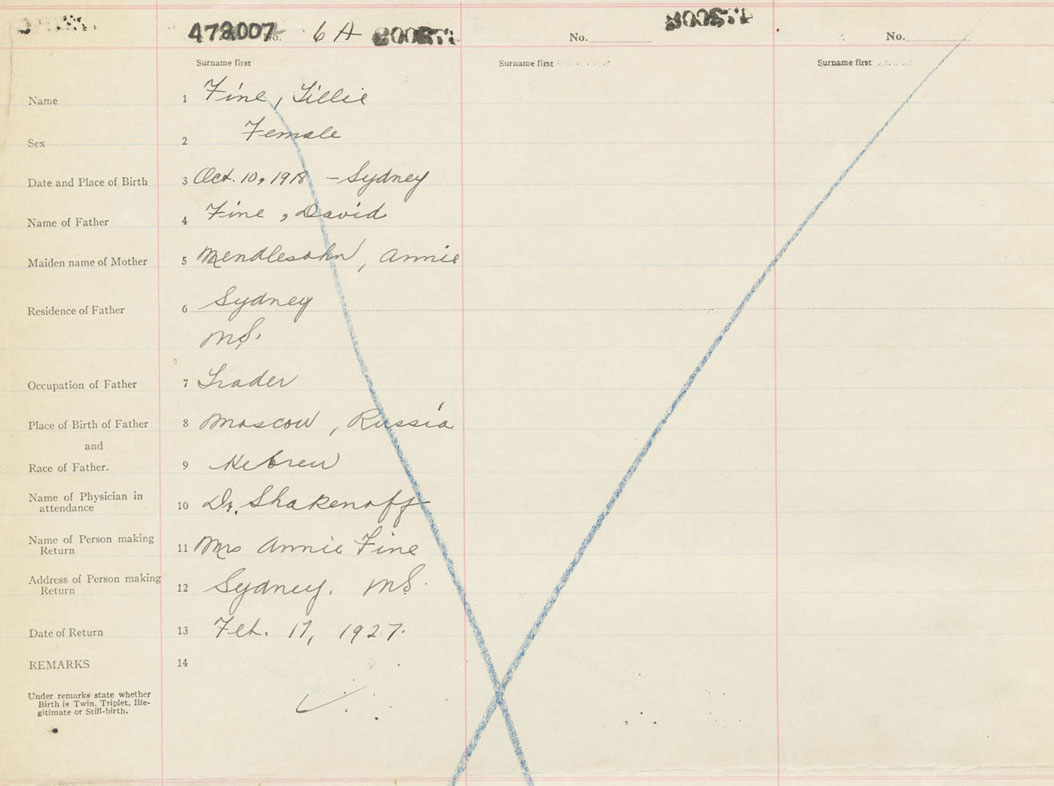 478007 No. 6A No. No.
Surname first Surname first Surname first
Name 1 Fine, Lillie
Sex 2 Female
Date and Place of Birth 3 Oct. 10, 1918 - Sydney
Name of Father 4 Fine, David
Maiden name of Mother 5 Mendlesohn, Annie
Residence of Father 6 Sydney
N.S.
Occupation of Father 7 Trader
Place of Birth of Father 8 Moscow, Russia
and
Race of Father. 9 Hebrew
Name of Physician in
attendance 10 Dr. Shakenoff
Name of Person making
Return 11 Mrs Annie Fine
Address of Person making
Return 12 Sydney. N.S.
Date of Return 13 Feb. 17, 1927.
REMARKS 14
Under remarks state whether
Birth is Twin, Triplet, Ille-
gitimate or Still-birth.